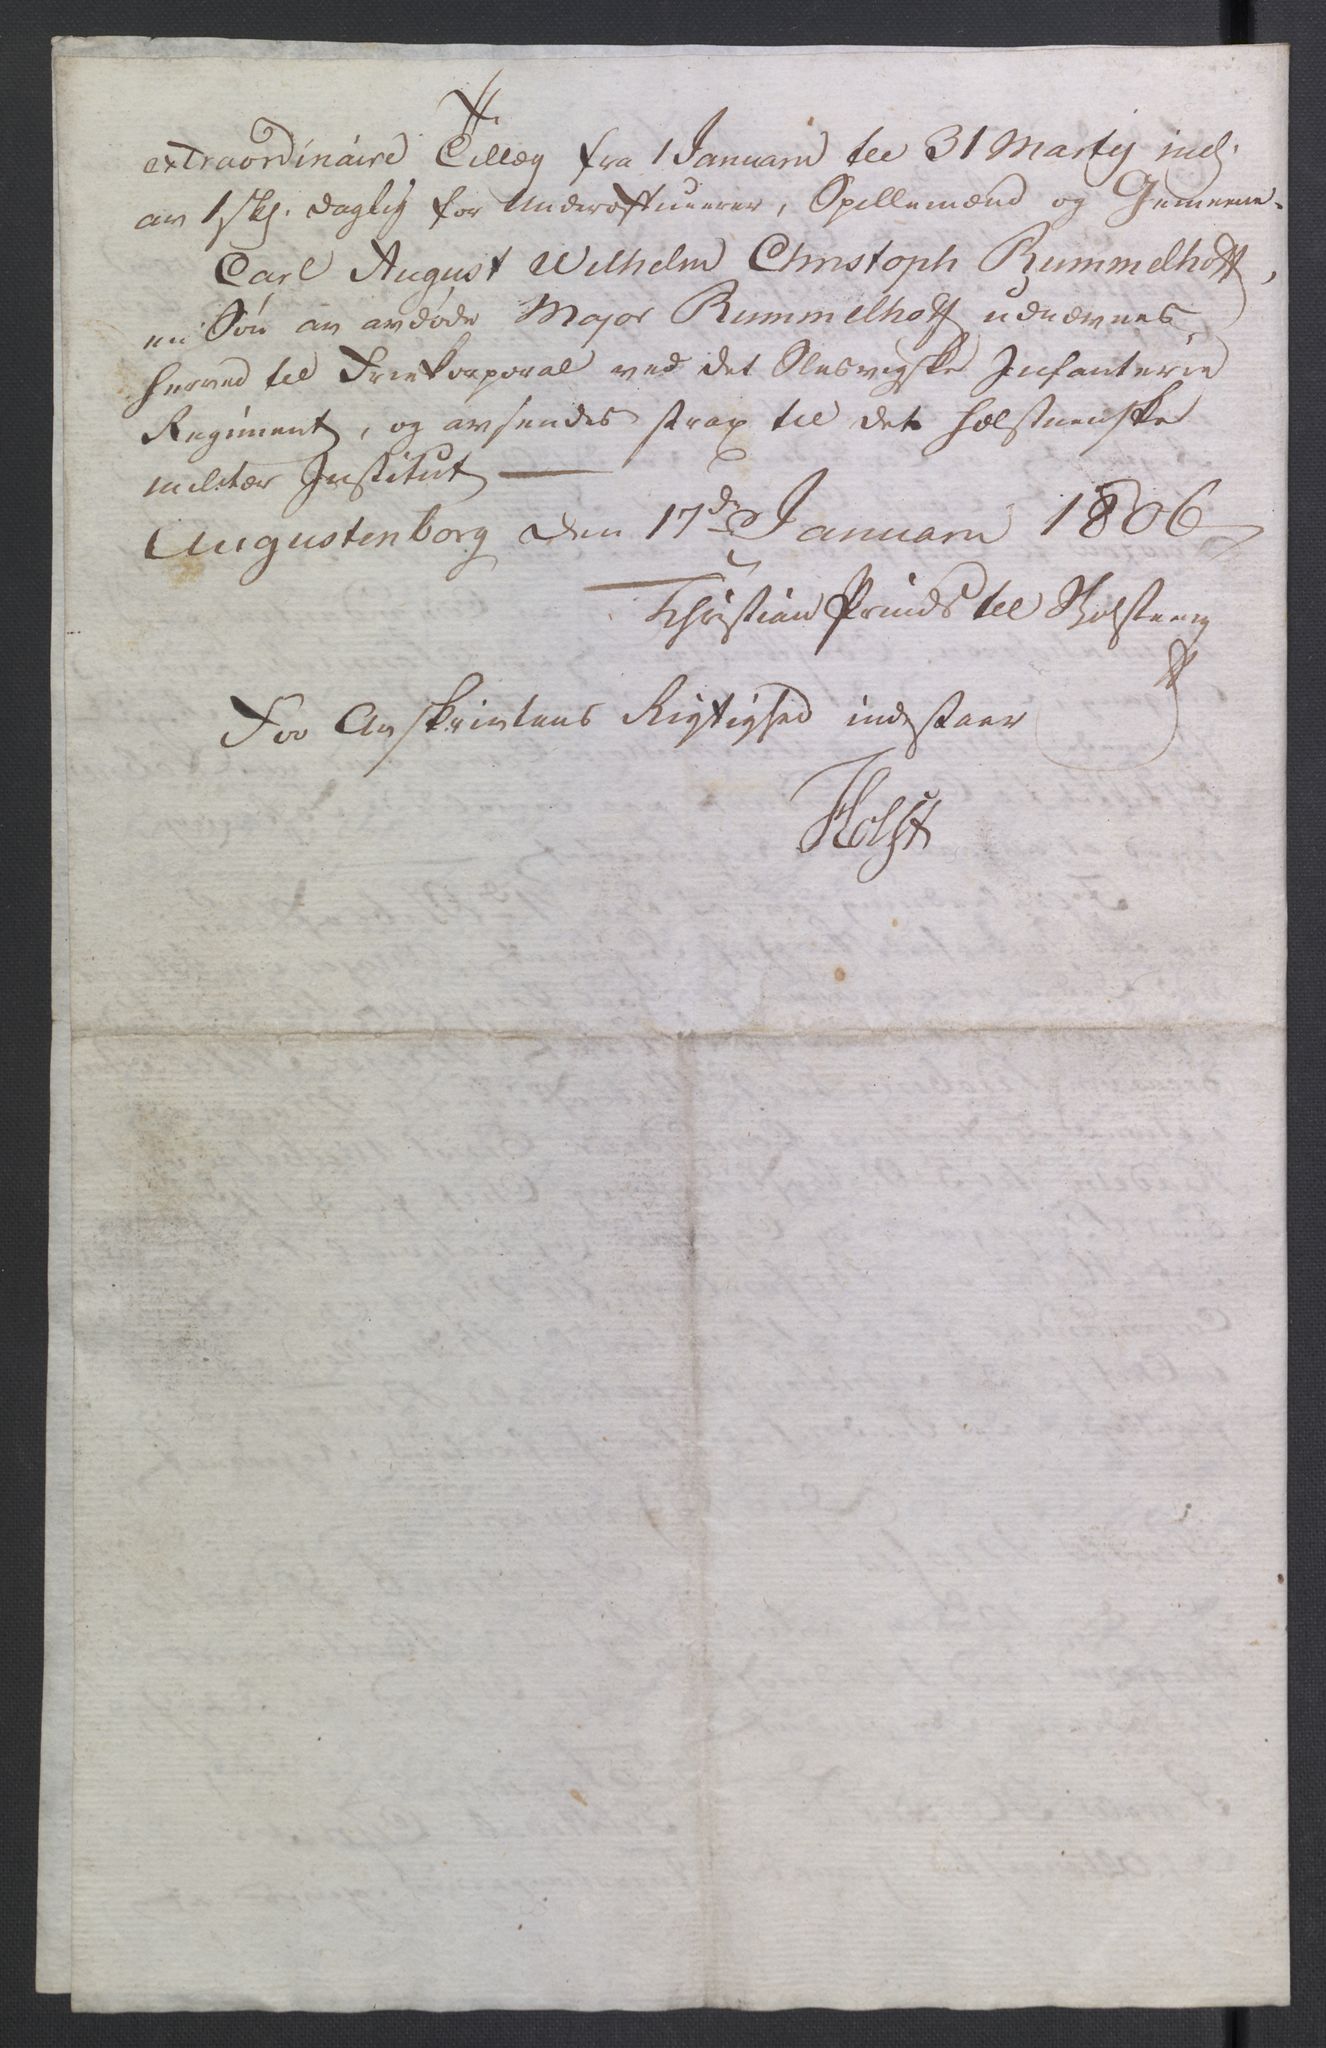 extraordinaire Tillæg fra 1 Januarii til 31 Martij incl.
av 1 skl. daglig for Underofficierer, Spillemænd og Gemeene.
Carl August Wilhelm Christoph Rummelhoff,
en Søn av avdøde Major Rummelhoff udnævnes
herved til Friekorporal ved det Slesvigske Infanterie
Regiment, og avsendes strax til det holsteenske
militær Institut
Augustenborg den 17de Januarii 1806
Christian Prinds til Holsteen
For Avskrivtens Rigtighed indestaaer
Holst